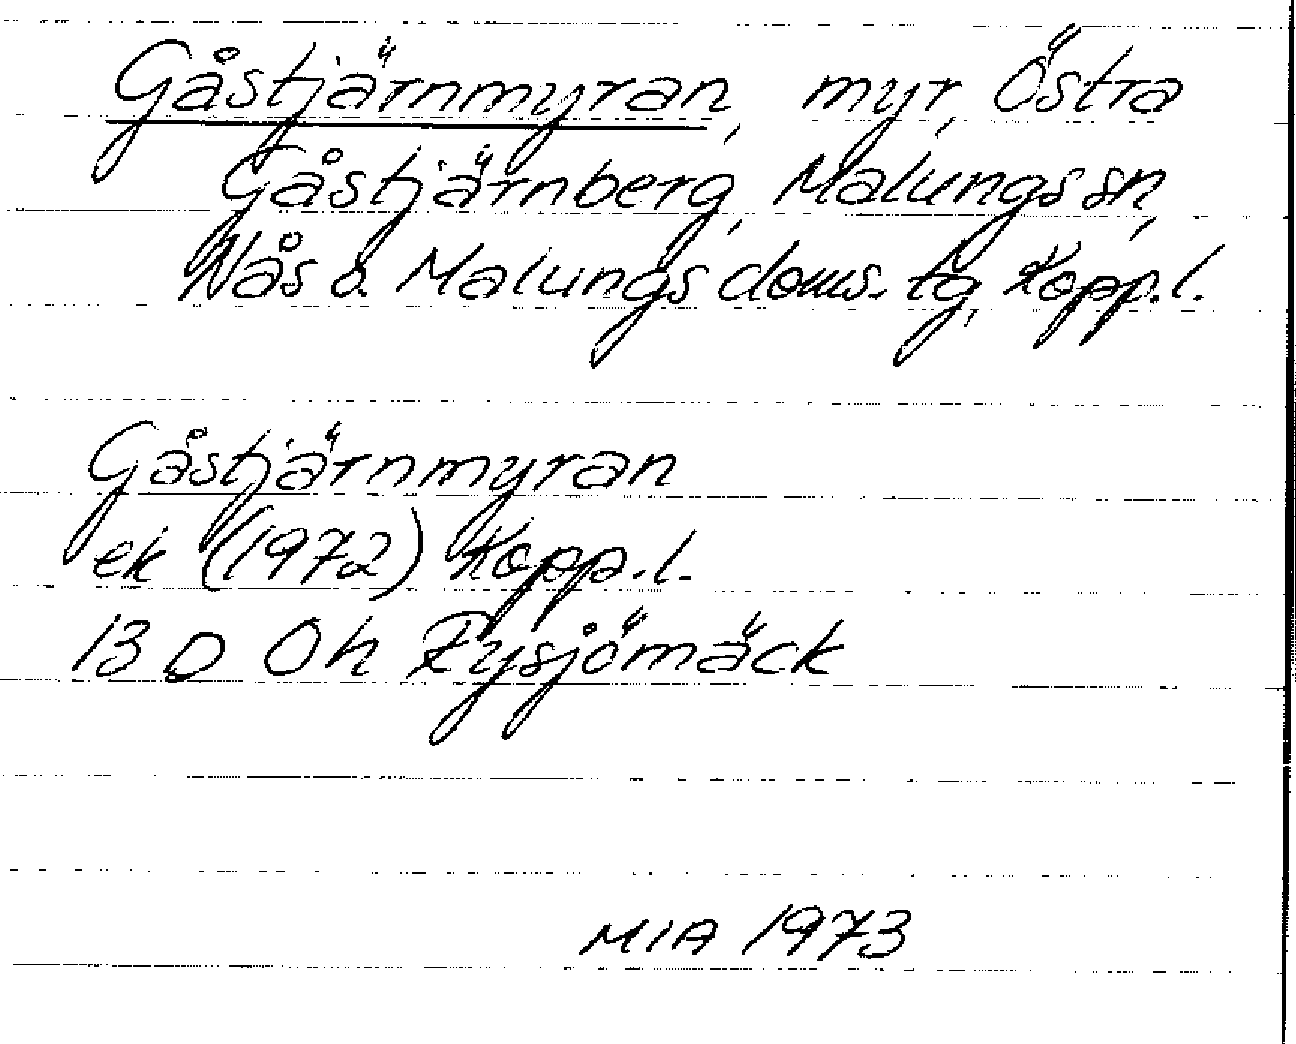 Gåstjärnmyran, myr, Östra
Gåstjärnberg, Malungs sn,
Nås o. Malungs doms. tg, Kopp.l.
Gåstjärnmyran
ek (1972) Kopp.l.
13 D 0h Fysjömäck
MIA 1973